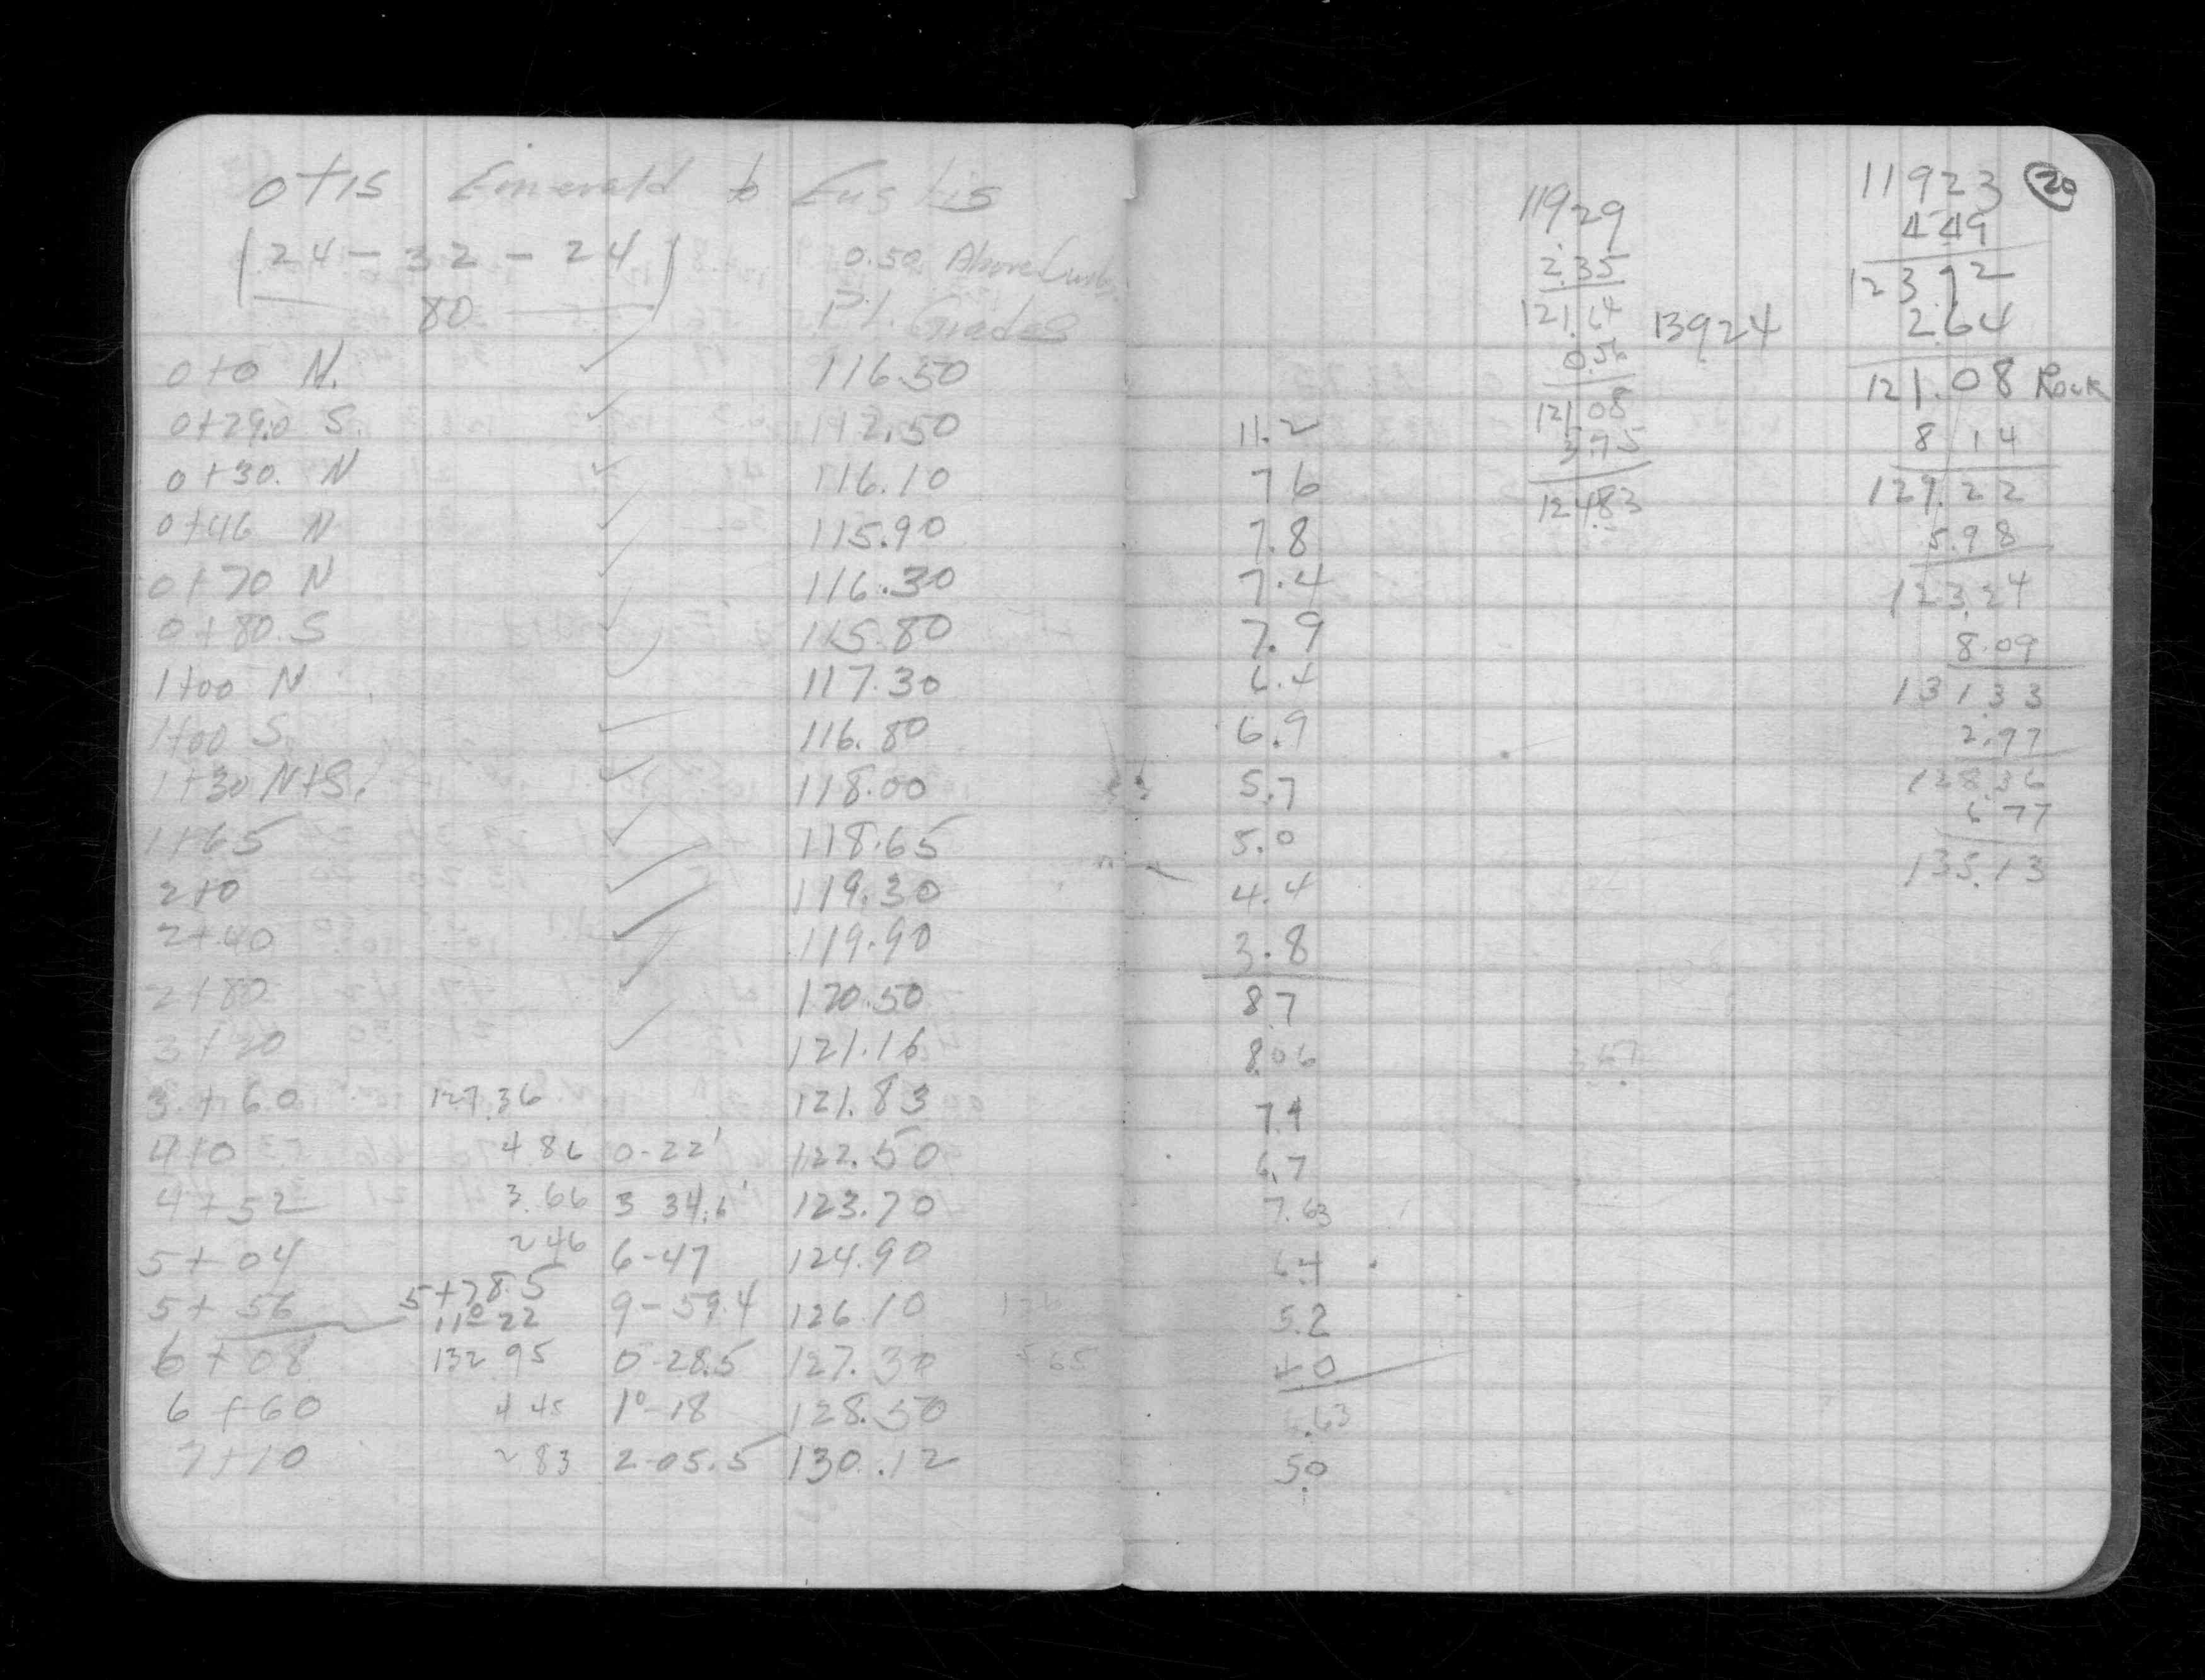 Otis Emerald to Eustis
(24 - 32 - 24) 0.50 Above Curb
80 P.L. Grades
0+0 N. ✓ 116.50
0+29.0 S. ✓ 112.50
0+30. N ✓ 116.10
0+46 N ✓ 115.90
0+70 N ✓ 116.30
0+80 S ✓ 115.80
1+00 N ✓ 117.30
1+00 S. ✓ 116.80
1+30 N+S. ✓ 118.00
1+65 ✓ 118.65
2+0 ✓ 119.30
2+40 ✓ 119.90
2+80 ✓ 120.50
3+20 ✓ 121.16
3+60 127.36 121.83
4+0 4 86 0-22' 122.50
4+52 3.66 3 34.6' 123.70
5+04 2 46 6-47 124.90
5+78.5
5+56 11°22 9-59.4 126.10 126
6+08 132 95 0-28.5 127.30 5 65
6+60 4 45 1°-18 128.50
7+10 2 83 2-05.5 130.12
11.2
7 6
7.8
7.4
7.9
6.4
6.9
5.7
5.0
4.4
3.8
8.7
8.06
7.4
6.7
7.63
6.4
5.2
4 0
5.0
119.29
2.35
121.64
0.56
121.08
3.75
124.83
139.24
3.67
20
119 23
4 49
123.72
2.64
121.08 Rock
8 14
129.22
5.98
123.24
8.09
131.33
2.97
128.36
6 77
135.13